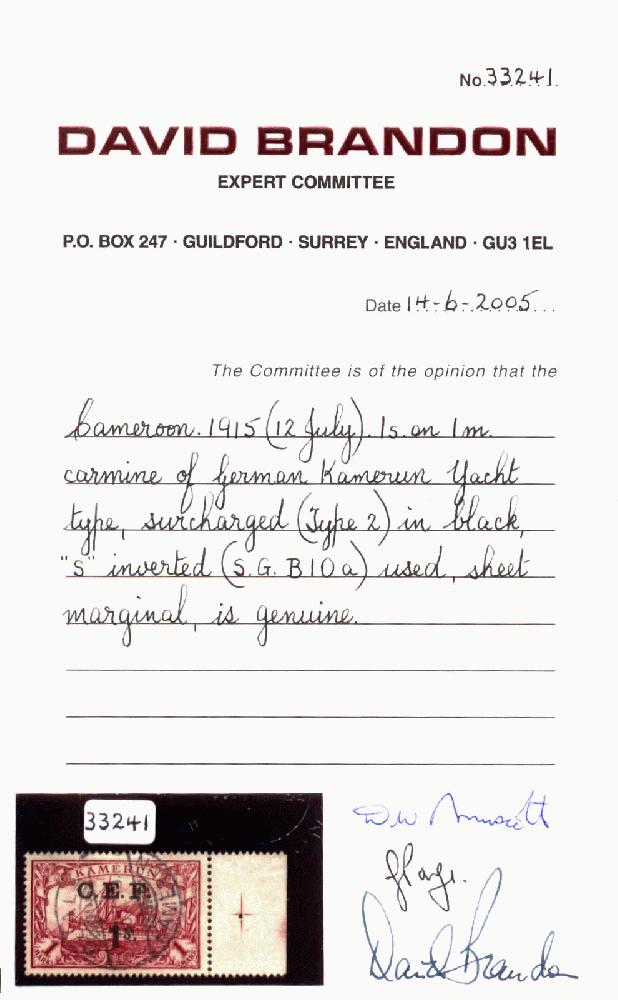 No. 33241.
DAVID BRANDON
EXPERT COMMITTEE
P.O. BOX 247 · GUILDFORD · SURREY · ENGLAND · GU3 1EL
Date 14-6-2005...
The Committee is of the opinion that the
Cameroon. 1915 (12 July). 1s. on 1m.
carmine of German Kamerun Yacht
type, surcharged (Type 2) in black,
"S" inverted (S.G. B10a) used, sheet
marginal, is genuine.
33241
KAMERUN
C.E.F.
1s.
David Brandon